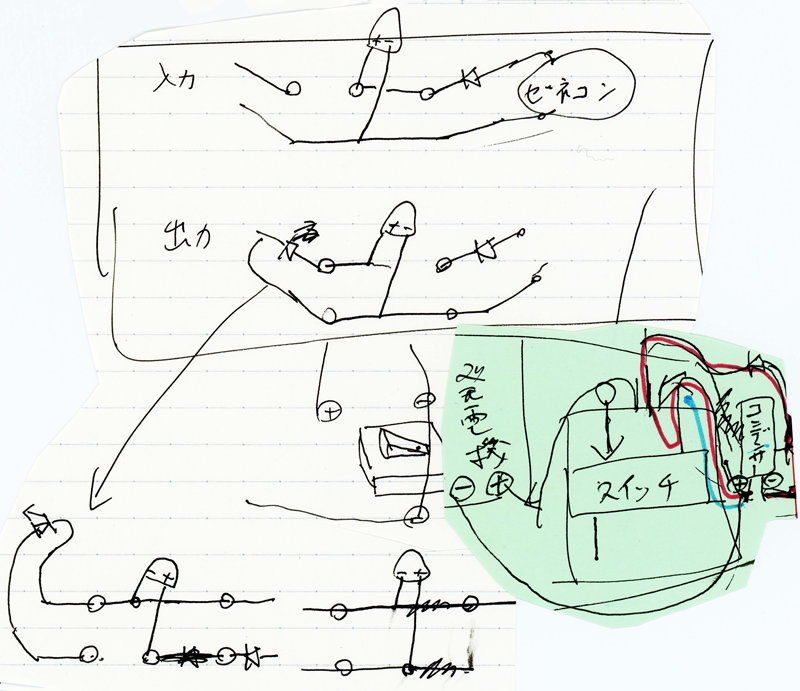 入力
ゼネコン
出力
充電機
スイッチ
コンデンサー